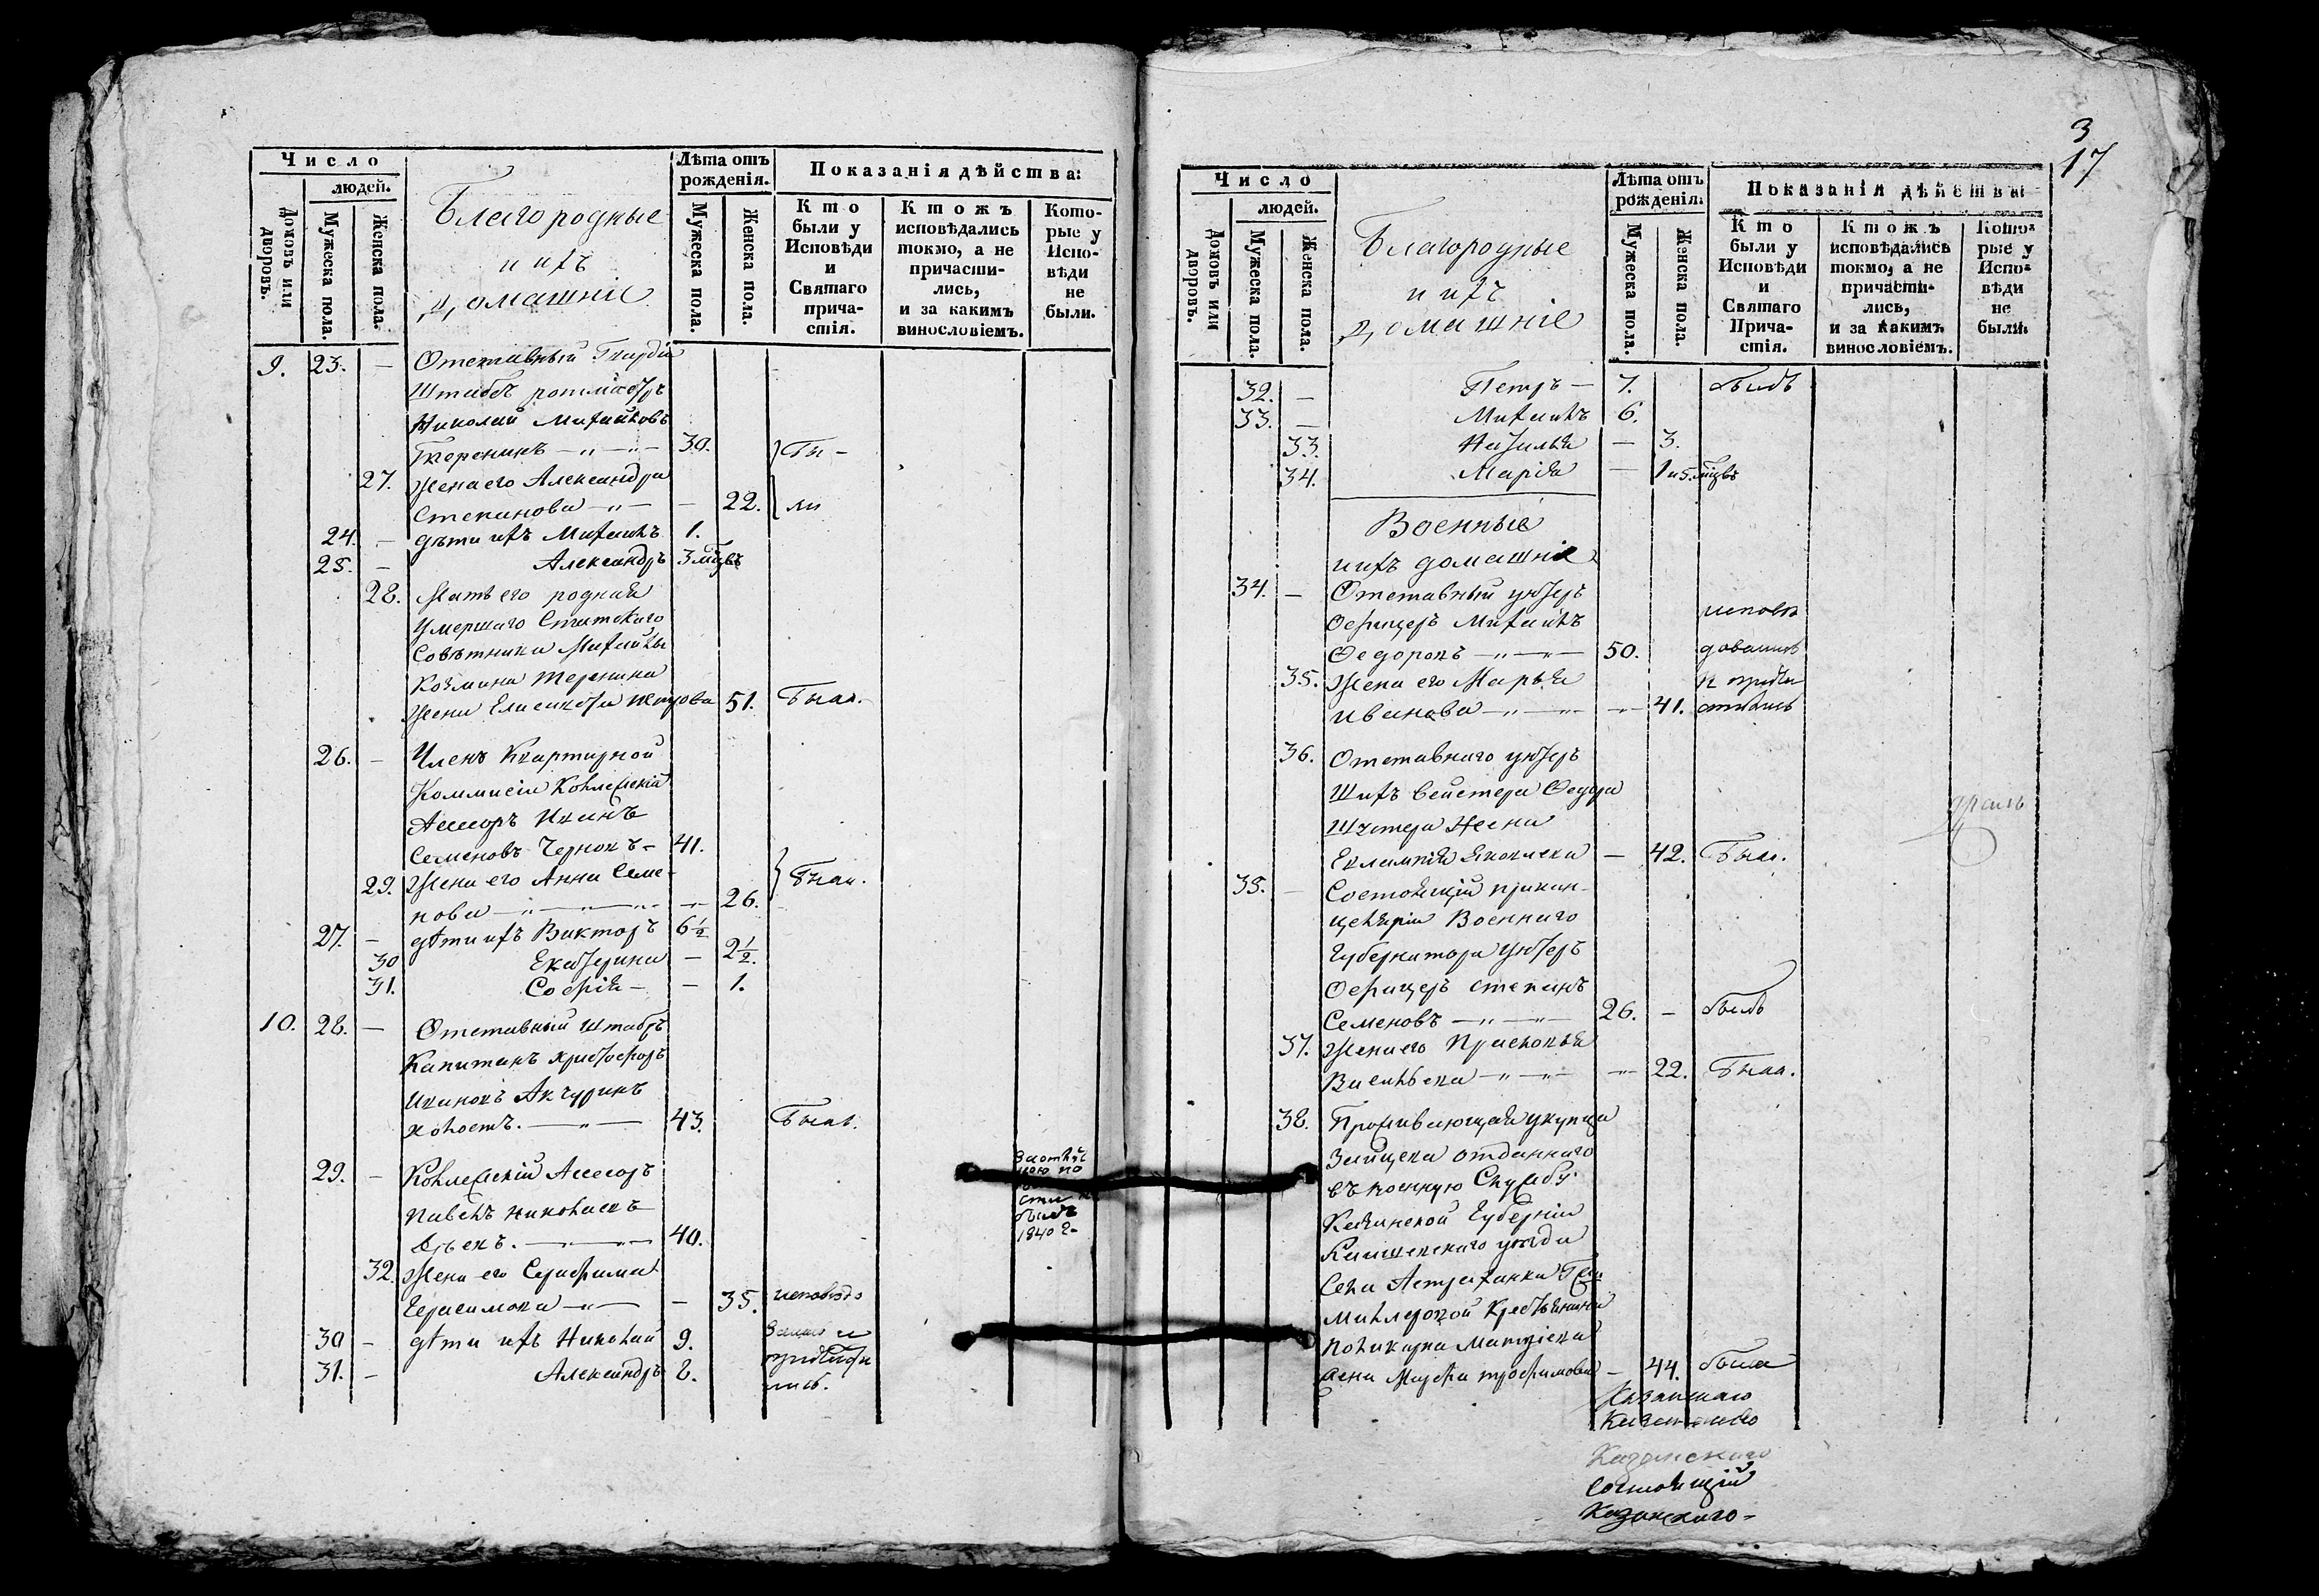 Число
людей.
Домовъ или дворовъ.
Мужеска пола.
Женска пола.
Благородные
и ихъ
домашніе
Лѣта отъ рожденія.
Мужеска пола.
Женска пола.
Показанія дѣйства:
Кто были у Исповѣди и Святаго причастія.
Ктожъ исповѣдались токмо, а не причастились, и за какимъ винословіемъ.
Которые у Исповѣди не были.
9. 23. — Отставный Гвардіи
Штабсъ ротмистръ
Николай Михайловъ
30. Бы-
27. Жена его Александра
Степанова — 22. ли
24. — дѣти ихъ Михаилъ 1.
25. — Александръ 3 мѣцвъ
28. Мать его родная
умершаго Статскаго
Совѣтника Михайлы
Козмина
жена Елисавета Петрова 51. Была.
26. — Членъ Квартирной
Коммисіи Коллежскій
Асессоръ Иванъ
Семеновъ Черновъ — 41.
29. Жена его Анна Семе-
нова — 26. Были.
27. — дѣти ихъ Викторъ 6½
30 Екатерина — 2½.
31. Софія — — 1.
10. 28. — Отставный Штабсъ
Капитанъ Христофоръ
Ивановъ Акчуринъ
холостъ. — 43. Былъ.
29. — Коллежскій Асессоръ
Павелъ Николаевъ
40.
былъ
1840 г.
32. Жена его Серафима
Герасимова — — 35. исповѣдо
30 — дѣти ихъ Николай 9. вались и
31. — Александръ 8. причасти
лись.
3
17
Число
людей.
Домовъ или дворовъ.
Мужеска пола.
Женска пола.
Благородные
и ихъ
домашніе
Лѣта отъ рожденія.
Мужеска пола.
Женска пола.
Показанія дѣйства
Кто были у Исповѣди и Святаго Причастія.
Ктожъ исповѣдались токмо, а не причастились, и за какимъ винословіемъ.
Которые у Исповѣди не были.
32. — Петръ — 7. былъ
33. — Михаилъ 6.
33. Наталья — 3.
34. Марія — 1 и 5. мѣцвъ
Военные
и ихъ домашніе
34. — Отставный унтеръ
Офицеръ Михаилъ исповѣ
Федоровъ — 50. довались
35. Жена его Марья и прича
Иванова — 41. стились
36. Отставнаго унтеръ
Шихъ
жена
Евлампія Яковлева — 42. Была.
35. — Состоящій при кан-
целяріи Военнаго
Губернатора унтеръ
Офицеръ Степанъ
Семеновъ — 26. — былъ
37. Жена его Прасковья
Васильева — 22. Была.
38. Проживающая у купца
Зайцева отданнаго
въ военную Службу
Казанской Губерніи
уѣзда
Села Астраханки
крестьянина
Поликарпа Матвѣева
жена Марфа Трофимова — 44. была
Казанскаго
Казанскаго
Состоящій
Казанскаго-